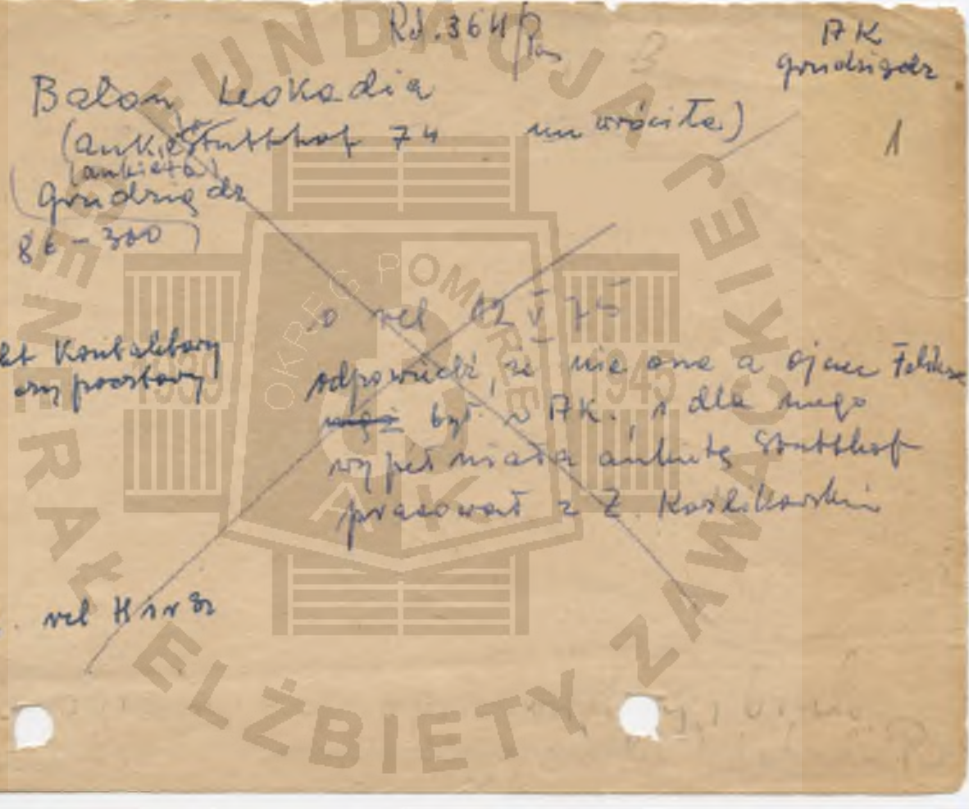 Rd. 364/Pom
AK
Grudziądz
1
Balon Leokadia
(ankieta Stutthof 74 nie wróciła)
(ankieta)
Grudziądz
86-300
o rel 12 V 75
kt Kontaktowy
czy pocztowy
odpowiedź, że nie ona a ojciec Feliks
mąż był w AK. i dla niego
wypełniała ankietę Stutthof
pracował z Z. Koślikowskim
rel
FUNDACJA GENERAŁ ELŻBIETY ZAWACKIEJ
OKRĘG POMORZE
1939 1945
AK